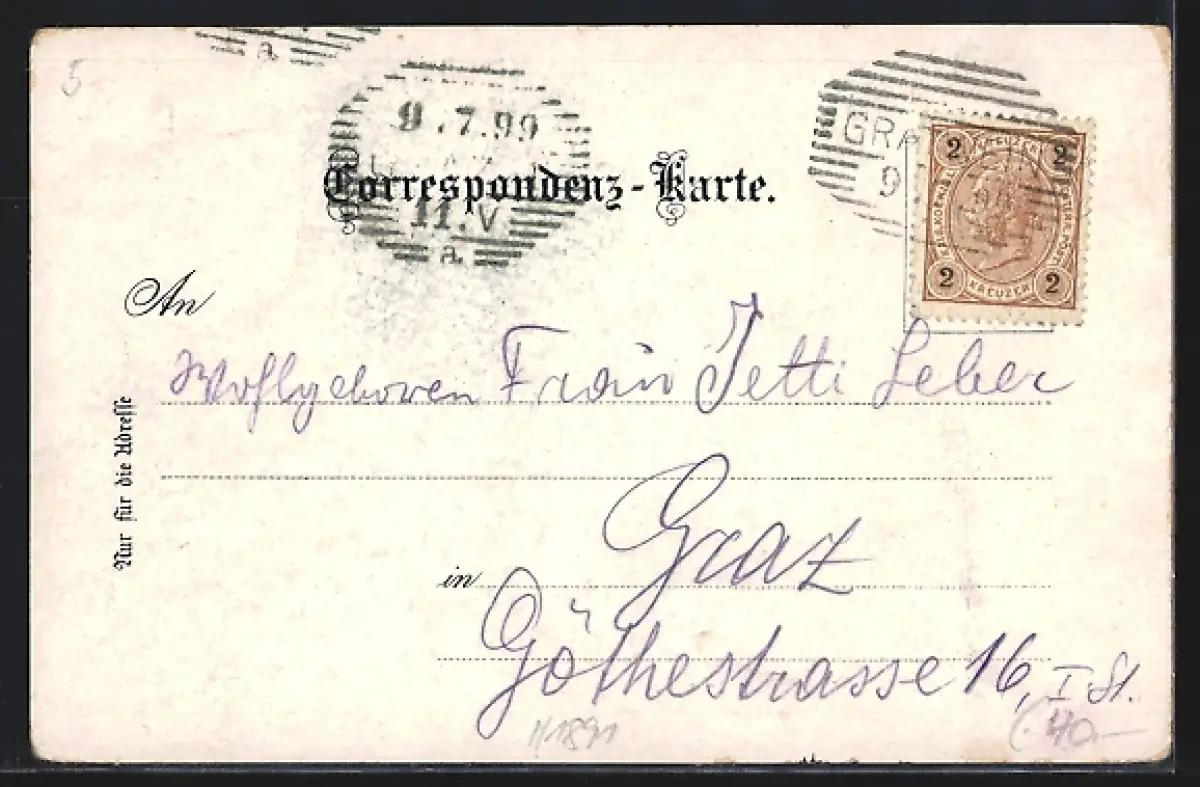 5
a.
9.7.99
11.V
a.
GRA
9
2 2
KREUZER
2 2
Correspondenz-Karte.
An
Wohlgeboren Frau Jetti Leber
Nur für die Adresse
in Graz
Göthestrasse 16, I. St.
1891
40.—